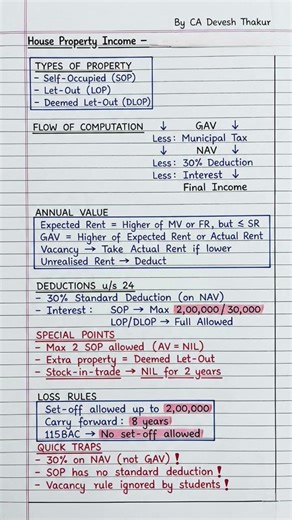 By CA Devesh Thakur
House Property Income –
TYPES OF PROPERTY
- Self-Occupied (SOP)
- Let-Out (LOP)
- Deemed Let-Out (DLOP)
FLOW OF COMPUTATION ↓ GAV ↓
Less: Municipal Tax
↓ NAV ↓
Less: 30% Deduction
Less: Interest ↓
Final Income
ANNUAL VALUE
Expected Rent = Higher of MV or FR, but ≤ SR
GAV = Higher of Expected Rent or Actual Rent
Vacancy → Take Actual Rent if lower
Unrealised Rent → Deduct
DEDUCTIONS u/s 24
- 30% Standard Deduction (on NAV)
- Interest: SOP → Max 2,00,000/30,000
LOP/DLOP → Full Allowed
SPECIAL POINTS
- Max 2 SOP allowed (AV = NIL)
- Extra property = Deemed Let-Out
- Stock-in-trade → NIL for 2 years
LOSS RULES
Set-off allowed up to 2,00,000
Carry forward: 8 years
115BAC → No set-off allowed
QUICK TRAPS
- 30% on NAV (not GAV) !
- SOP has no standard deduction !
- Vacancy rule ignored by students !